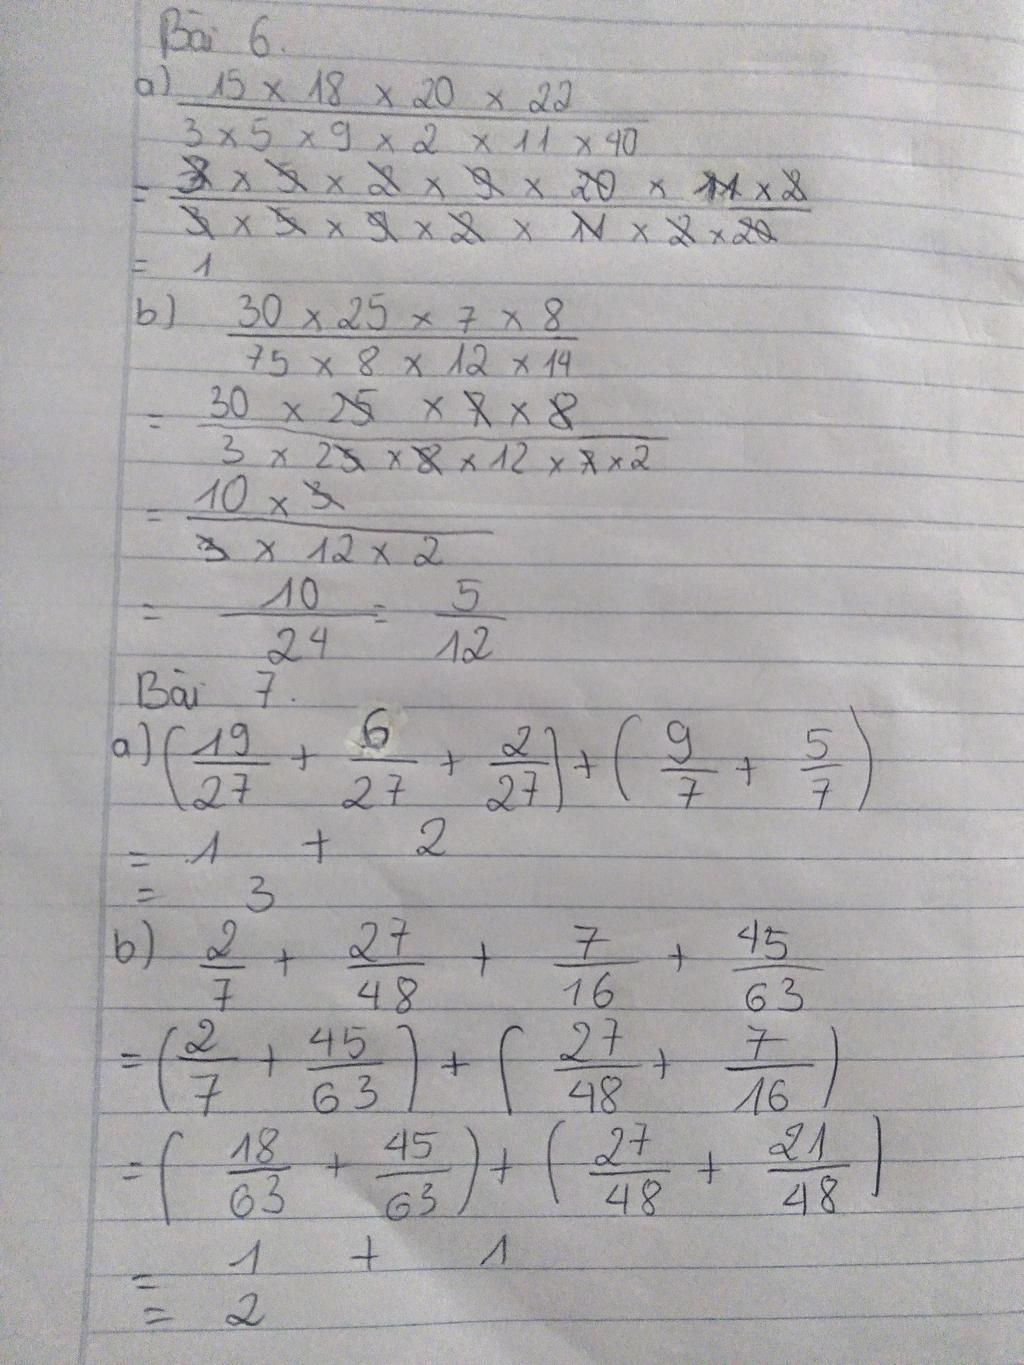 Bài 6.
a) 15 x 18 x 20 x 22
3 x 5 x 9 x 2 x 11 x 40
= 3 x 5 x 2 x 9 x 20 x 11 x 2
3 x 5 x 9 x 2 x 11 x 2 x 20
= 1
b) 30 x 25 x 7 x 8
75 x 8 x 12 x 14
= 30 x 25 x 7 x 8
3 x 25 x 8 x 12 x 7 x 2
= 10 x 3
3 x 12 x 2
= 10/24 = 5/12
Bài 7.
a) (19/27 + 6/27 + 2/27) + (9/7 + 5/7)
= 1 + 2
= 3
b) 2/7 + 27/48 + 7/16 + 45/63
= (2/7 + 45/63) + (27/48 + 7/16)
= (18/63 + 45/63) + (27/48 + 21/48)
= 1 + 1
= 2